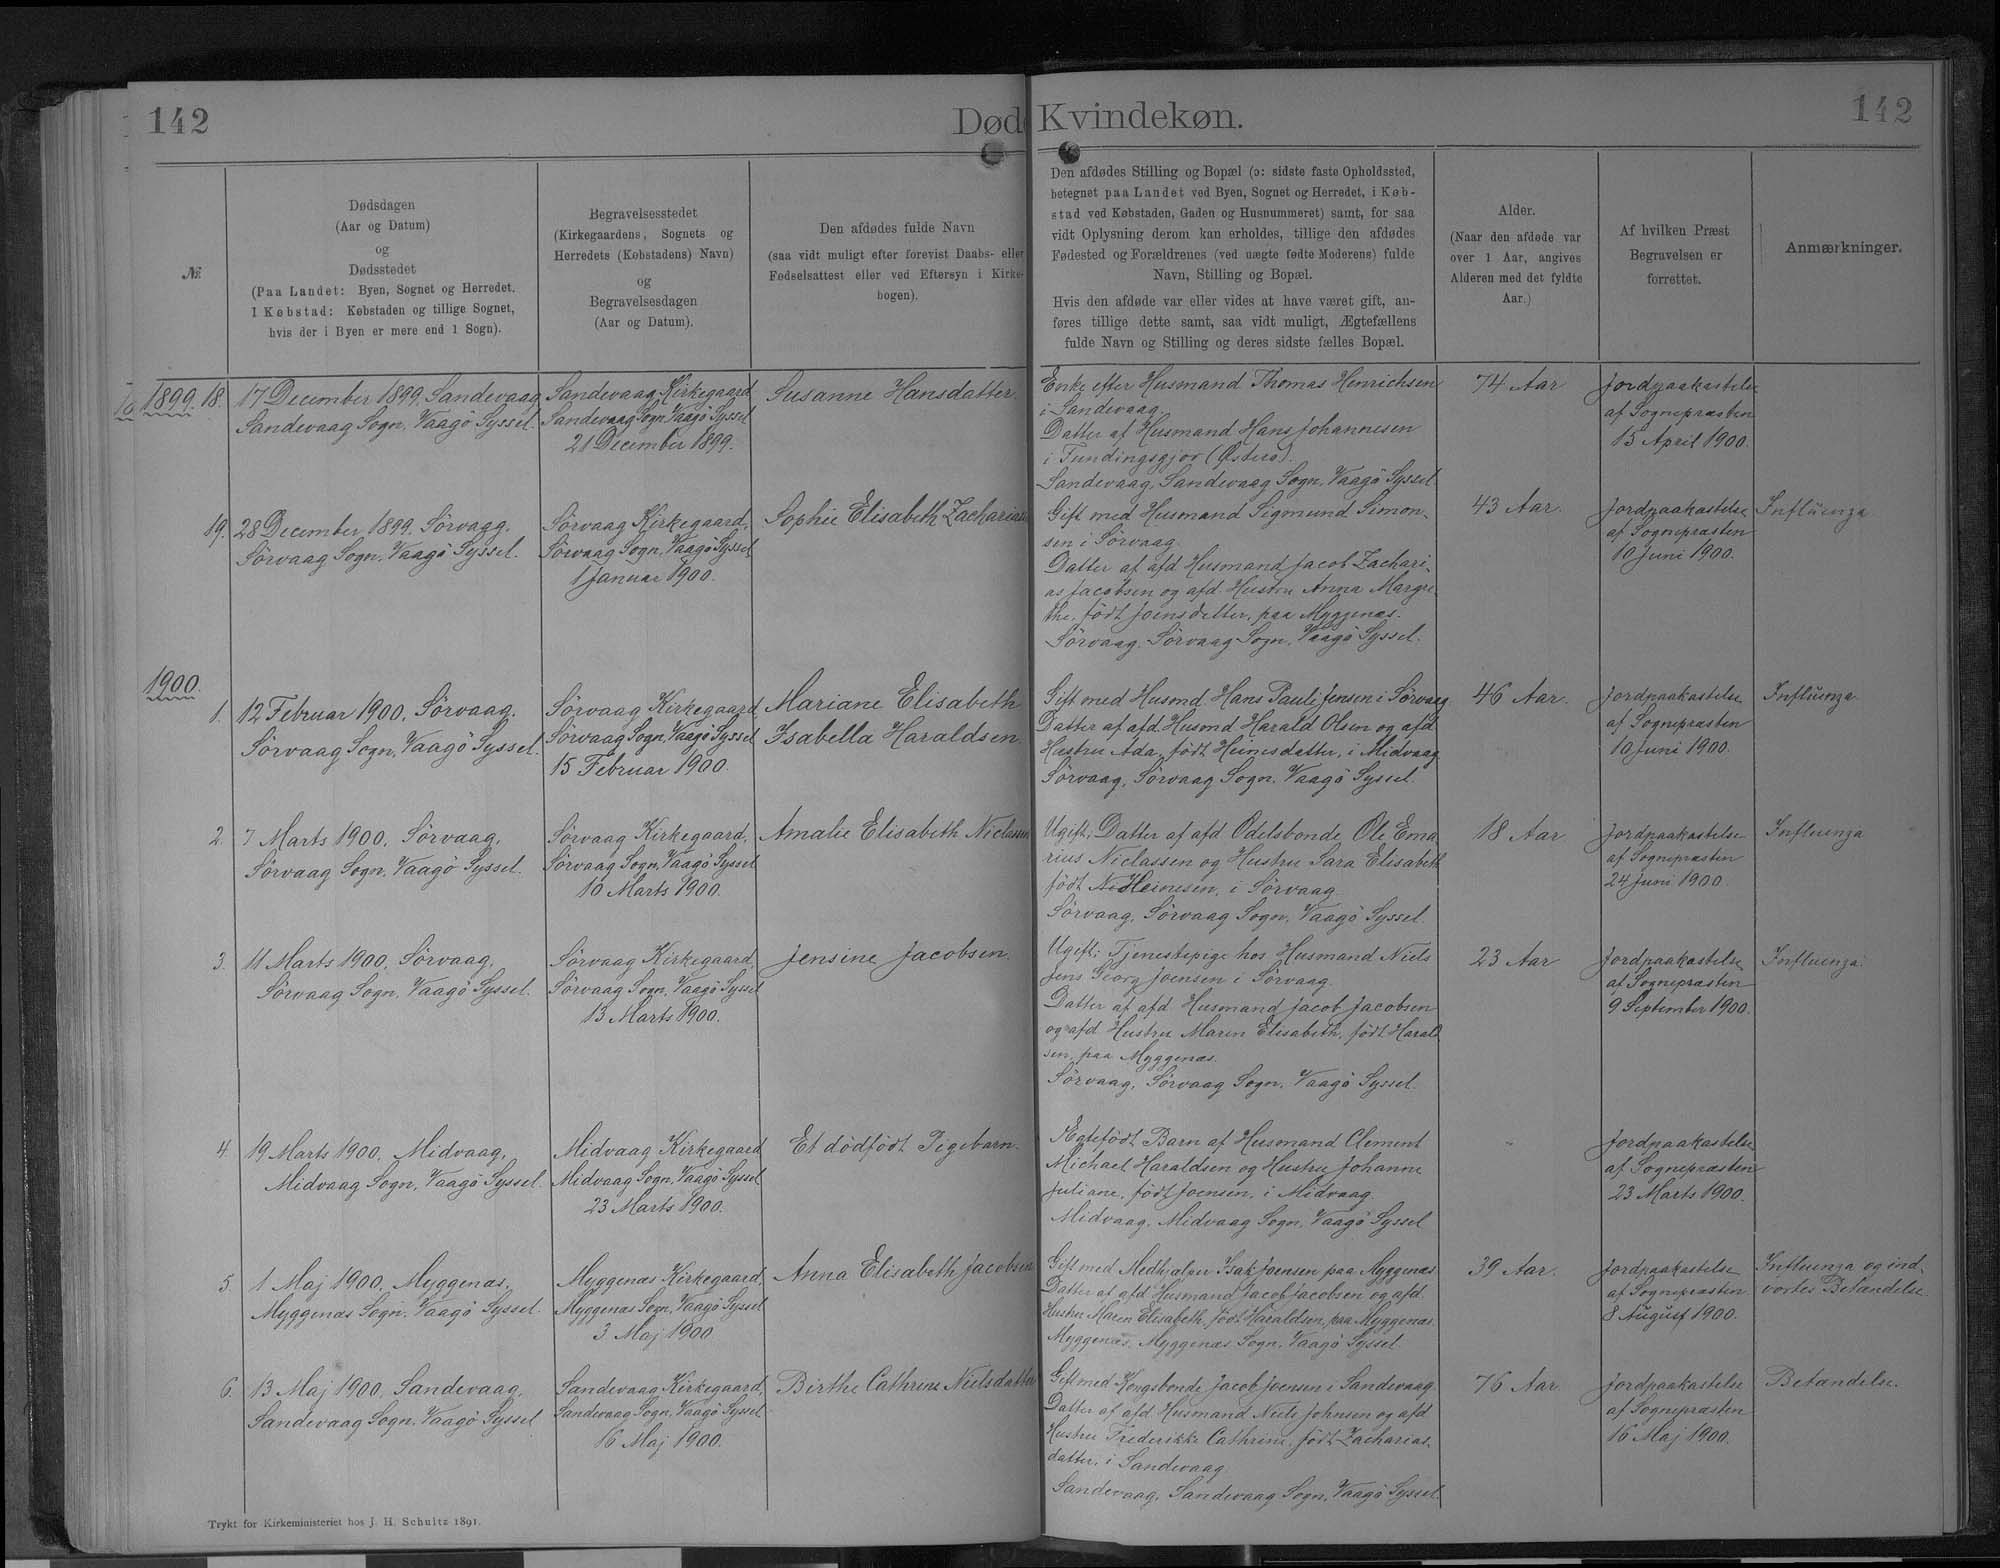 142
Død
Kvindekøn.
142
№
Dødsdagen
(Aar og Datum)
og
Dødsstedet
(Paa Landet: Byen, Sognet og Herredet.
I Købstad: Købstaden og tillige Sognet,
hvis der i Byen er mere end 1 Sogn).
Begravelsesstedet
(Kirkegaardens, Sognets og
Herredets (Købstadens) Navn)
og
Begravelsesdagen
(Aar og Datum).
Den afdødes fulde Navn
(saa vidt muligt efter forevist Daabs- eller
Fødselsattest eller ved Eftersyn i Kirke-
bogen).
Den afdødes Stilling og Bopæl (ɔ: sidste faste Opholdssted,
betegnet paa Landet ved Byen, Sognet og Herredet, i Køb-
stad ved Købstaden, Gaden og Husnummeret) samt, for saa
vidt Oplysning derom kan erholdes, tillige den afdødes
Fødested og Forældrenes (ved uægte fødte Moderens) fulde
Navn, Stilling og Bopæl.
Hvis den afdøde var eller vides at have været gift, an-
føres tillige dette samt, saa vidt muligt, Ægtefællens
fulde Navn og Stilling og deres sidste fælles Bopæl.
Alder.
(Naar den afdøde var
over 1 Aar, angives
Alderen med det fyldte
Aar.)
Af hvilken Præst
Begravelsen er
forrettet.
Anmærkninger.
1899. 18.
17 December 1899. Sandevaag
Sandevaag Sogn, Vaagö Syssel.
Sandevaag Kirkegaard
Sandevaag Sogn, Vaagö Syssel
21 December 1899.
Susanne Hansdatter.
Enke efter Husmand Thomas Henrichsen
i Sandevaag.
Datter af Husmand Hans Johannesen
i Fundingsgjov (Østerö).
Sandevaag, Sandevaag Sogn, Vaagö Syssel.
74 Aar
Jordpaakastelse
af Sognepræsten
15 April 1900.
19.
28 December 1899. Sörvagg.
Sörvaag Sogn, Vaagö Syssel.
Sörvaag Kirkegaard,
Sörvaag Sogn, Vaagö Syssel
1 Januar 1900.
Sophie Elisabeth Zacharias
Gift med Husmand Sigmund Simon-
sen i Sörvaag
Datter af afd Husmand Jacob Zachari-
as Jacobsen og afd. Hustru Anna Margre
the, födt Joensdatter, paa Myggenæs.
Sörvaag, Sörvaag Sogn, Vaagö Syssel.
43 Aar.
Jordpaakastelse
af Sognepræsten
10 Juni 1900.
Influenza
1900.
1.
12 Februar 1900, Sörvaag.
Sörvaag Sogn, Vaagö Syssel.
Sörvaag Kirkegaard,
Sörvaag Sogn, Vaagö Syssel
15 Februar 1900.
Mariane Elisabeth
Isabella Haraldsen.
Gift med Husmd Hans Pauli Jensen i Sörvaag
Datter af afd. Husmd Harald Olsen og afd
Hustru Ada, födt Heinesdatter, i Midvaag
Sörvaag, Sörvaag Sogn, Vaagö Syssel.
46 Aar.
Jordpaakastelse
af Sognepræsten
10 Juni 1900.
Influenza
2.
7 Marts 1900. Sörvaag,
Sörvaag Sogn, Vaagö Syssel.
Sörvaag Kirkegaard,
Sörvaag Sogn, Vaagö Syssel
10 Marts 1900.
Amalie Elisabeth Niclassen
Ugift; Datter af afd Odelsbonde Ole Ema
rius Niclassen og Hustru Sara Elisabeth
födt Heinesen, i Sörvaag
Sörvaag, Sörvaag Sogn, Vaagö Syssel.
18 Aar
Jordpaakastelse
af Sognepræsten
24 Juni 1900.
Influenza
3.
11 Marts 1900. Sörvaag,
Sörvaag Sogn, Vaagö Syssel.
Sörvaag Kirkegaard,
Sörvaag Sogn, Vaagö Syssel
13 Marts 1900.
Jensine Jacobsen.
Ugift; Tjenestepige hos Husmand Niels
Jens Georg Joensen i Sörvaag.
Datter af afd Husmand Jacob Jacobsen
og afd Hustru Maren Elisabeth, födt Harald
sen, paa Myggenæs.
Sörvaag, Sörvaag Sogn, Vaagö Syssel.
23 Aar
Jordpaakastelse
af Sognepræsten
9 September 1900.
Influenza.
4.
19 Marts 1900. Midvaag,
Midvaag Sogn, Vaagö Syssel.
Midvaag Kirkegaard
Midvaag Sogn, Vaagö Syssel
23 Marts 1900.
Et dödfödt Pigebarn.
Ægtefödt Barn af Husmand Clement
Michael Haraldsen og Hustru Johanne
Juliane, födt Joensen, i Midvaag.
Midvaag, Midvaag Sogn, Vaagö Syssel
"
Jordpaakastelse
af Sognepræsten
23 Marts 1900.
5.
1 Maj 1900. Myggenæs,
Myggenæs Sogn, Vaagö Syssel.
Myggenæs Kirkegaard,
Myggenæs Sogn, Vaagö Syssel
3 Maj 1900
Anna Elisabeth Jacobsen
Gift med Medhjælper Isak Joensen paa Myggenæs
Datter af afd Husmand Jacob Jacobsen og afd.
Hustru Maren Elisabeth, födt Haraldsen, paa Myggenæs.
Myggenæs, Myggenæs Sogn, Vaagö Syssel.
39 Aar.
Jordpaakastelse
af Sognepræsten
8 August 1900.
Influenza og ind-
vortes Betændelse.
6.
13 Maj 1900, Sandevaag,
Sandevaag Sogn, Vaagö Syssel
Sandevaag Kirkegaard,
Sandevaag Sogn, Vaagö Syssel
16 Maj 1900.
Birthe Cathrine Nielsdatter
Gift med Kongsbonde Jacob Joensen i Sandevaag
Datter af afd Husmand Niels Johnsen og afd
Hustru Frederikke Cathrine, födt Zacharias-
datter, i Sandevaag.
Sandevaag, Sandevaag Sogn, Vaagö Syssel.
76 Aar.
Jordpaakastelse
af Sognepræsten
16 Maj 1900.
Betændelse.
Trykt for Kirkeministeriet hos J. H. Schultz 1891.